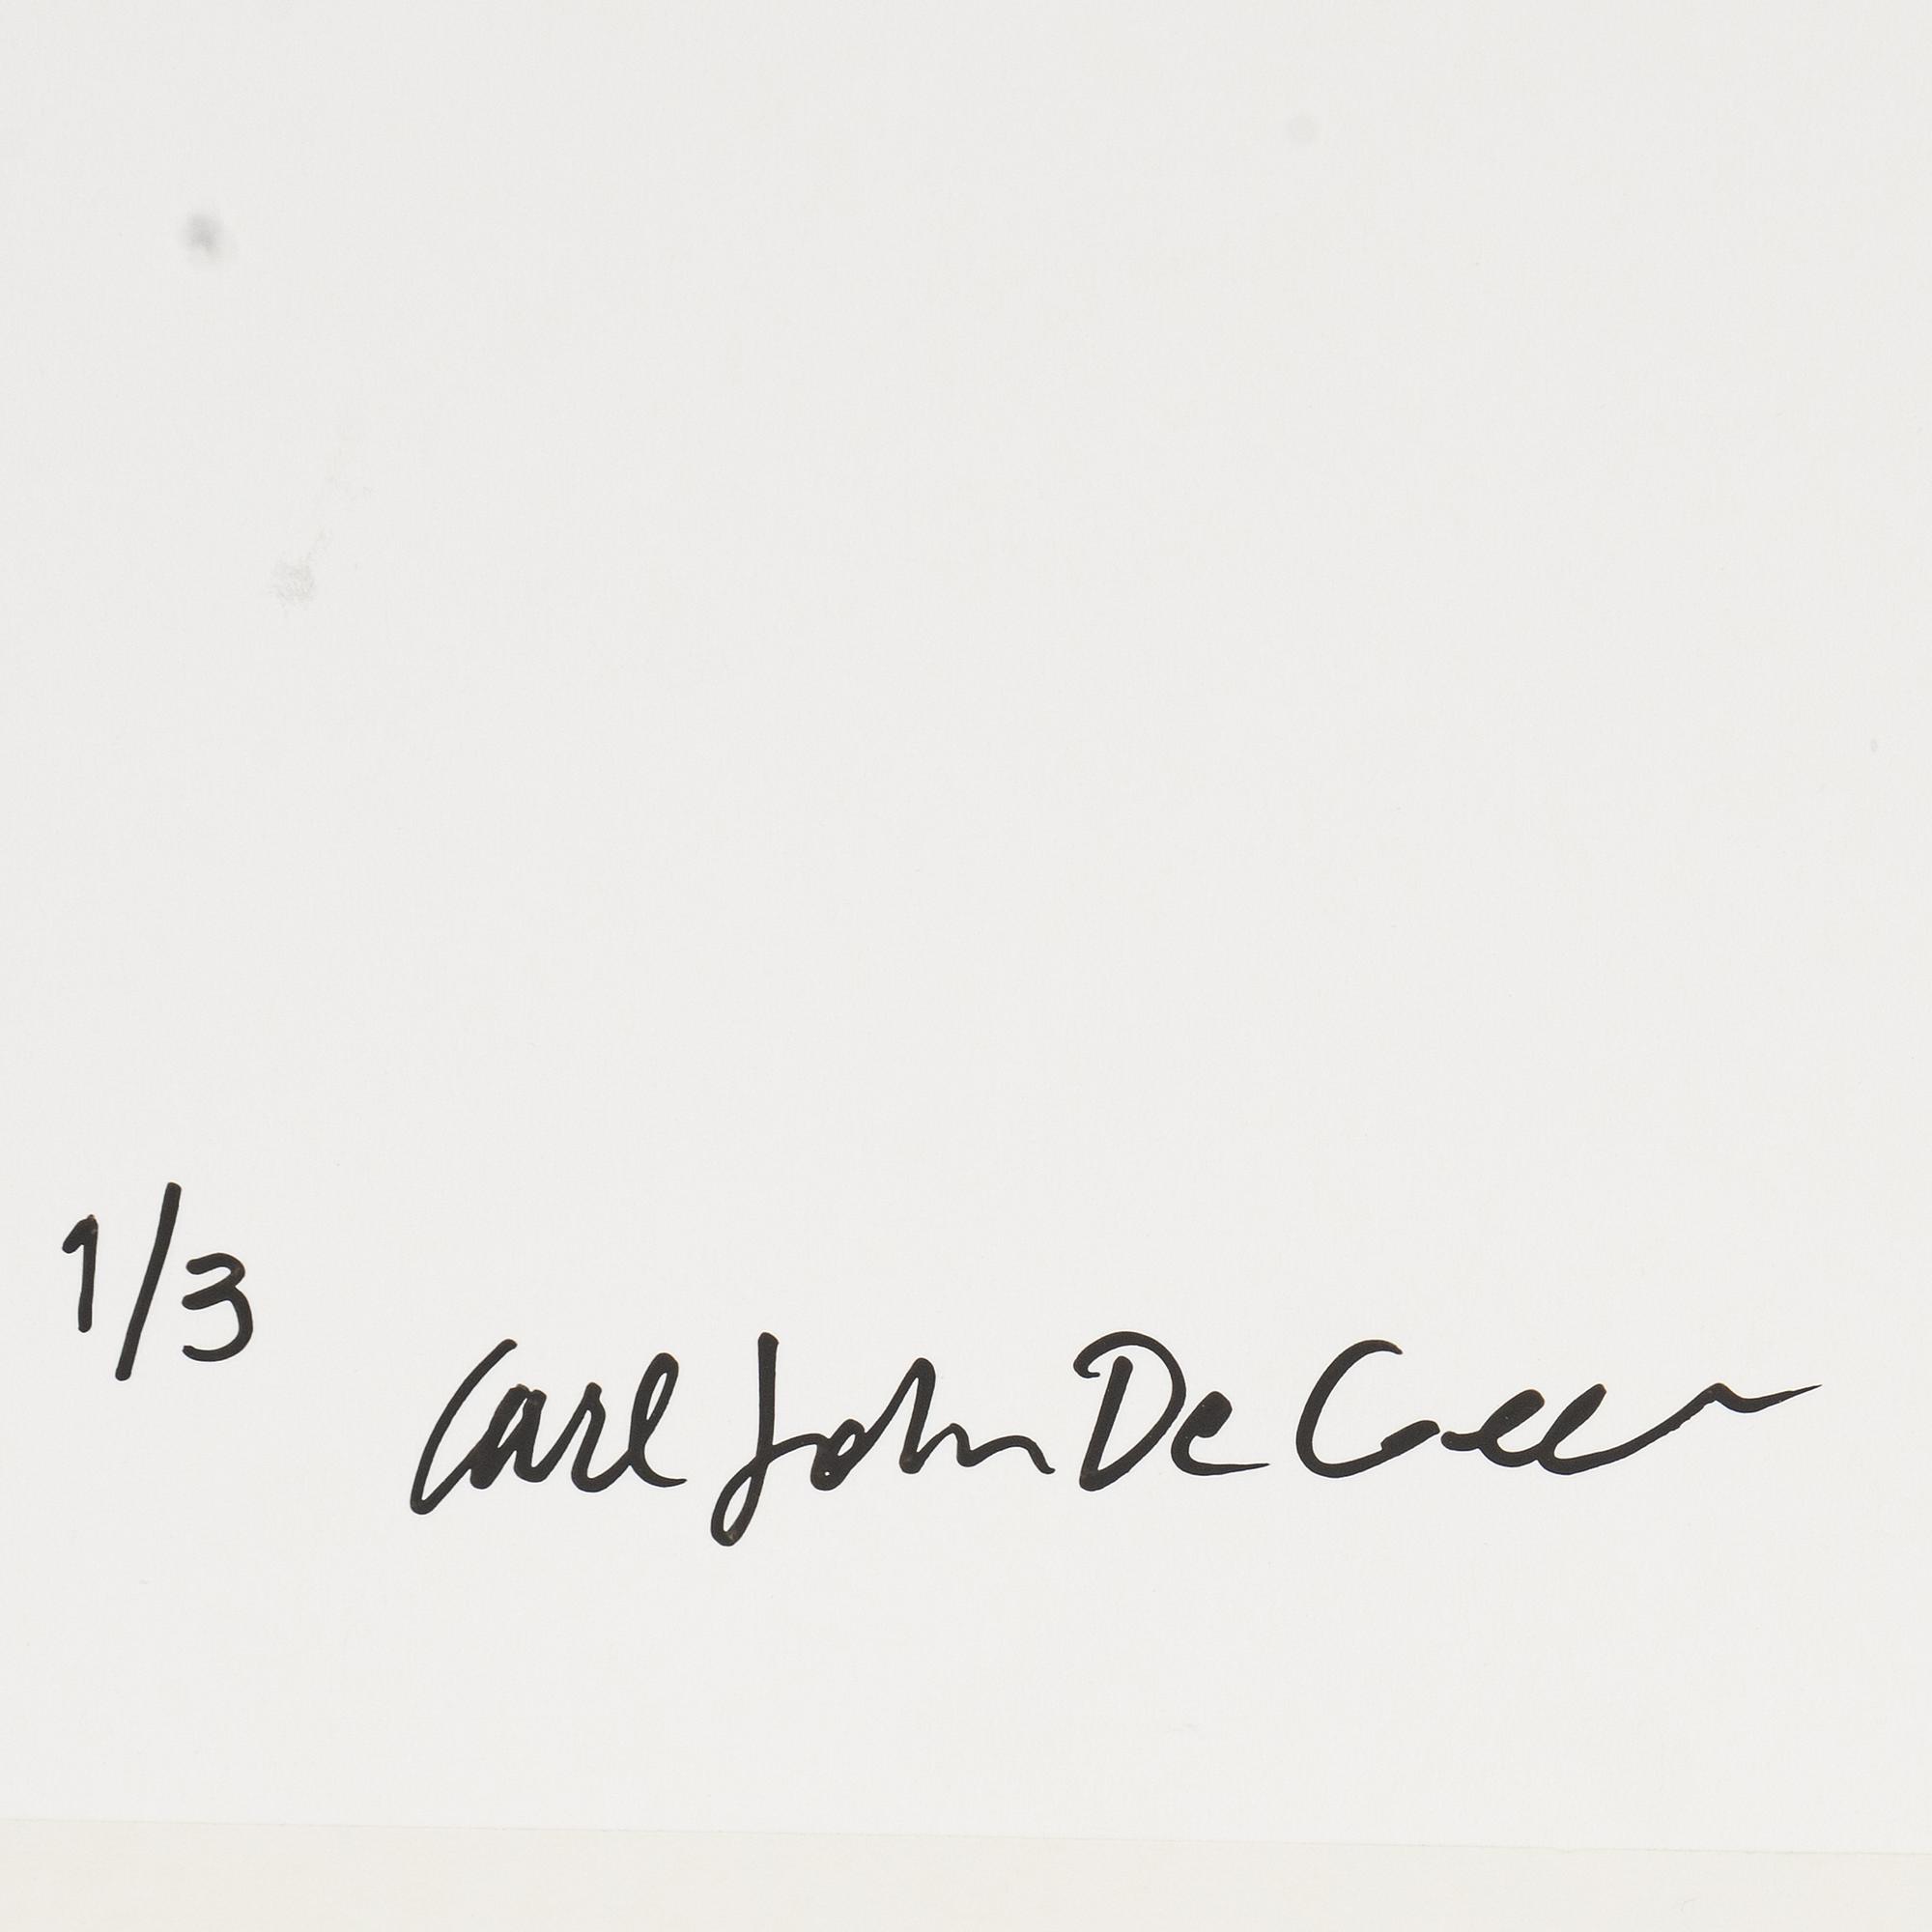 1/3
Carl Johan De Geer